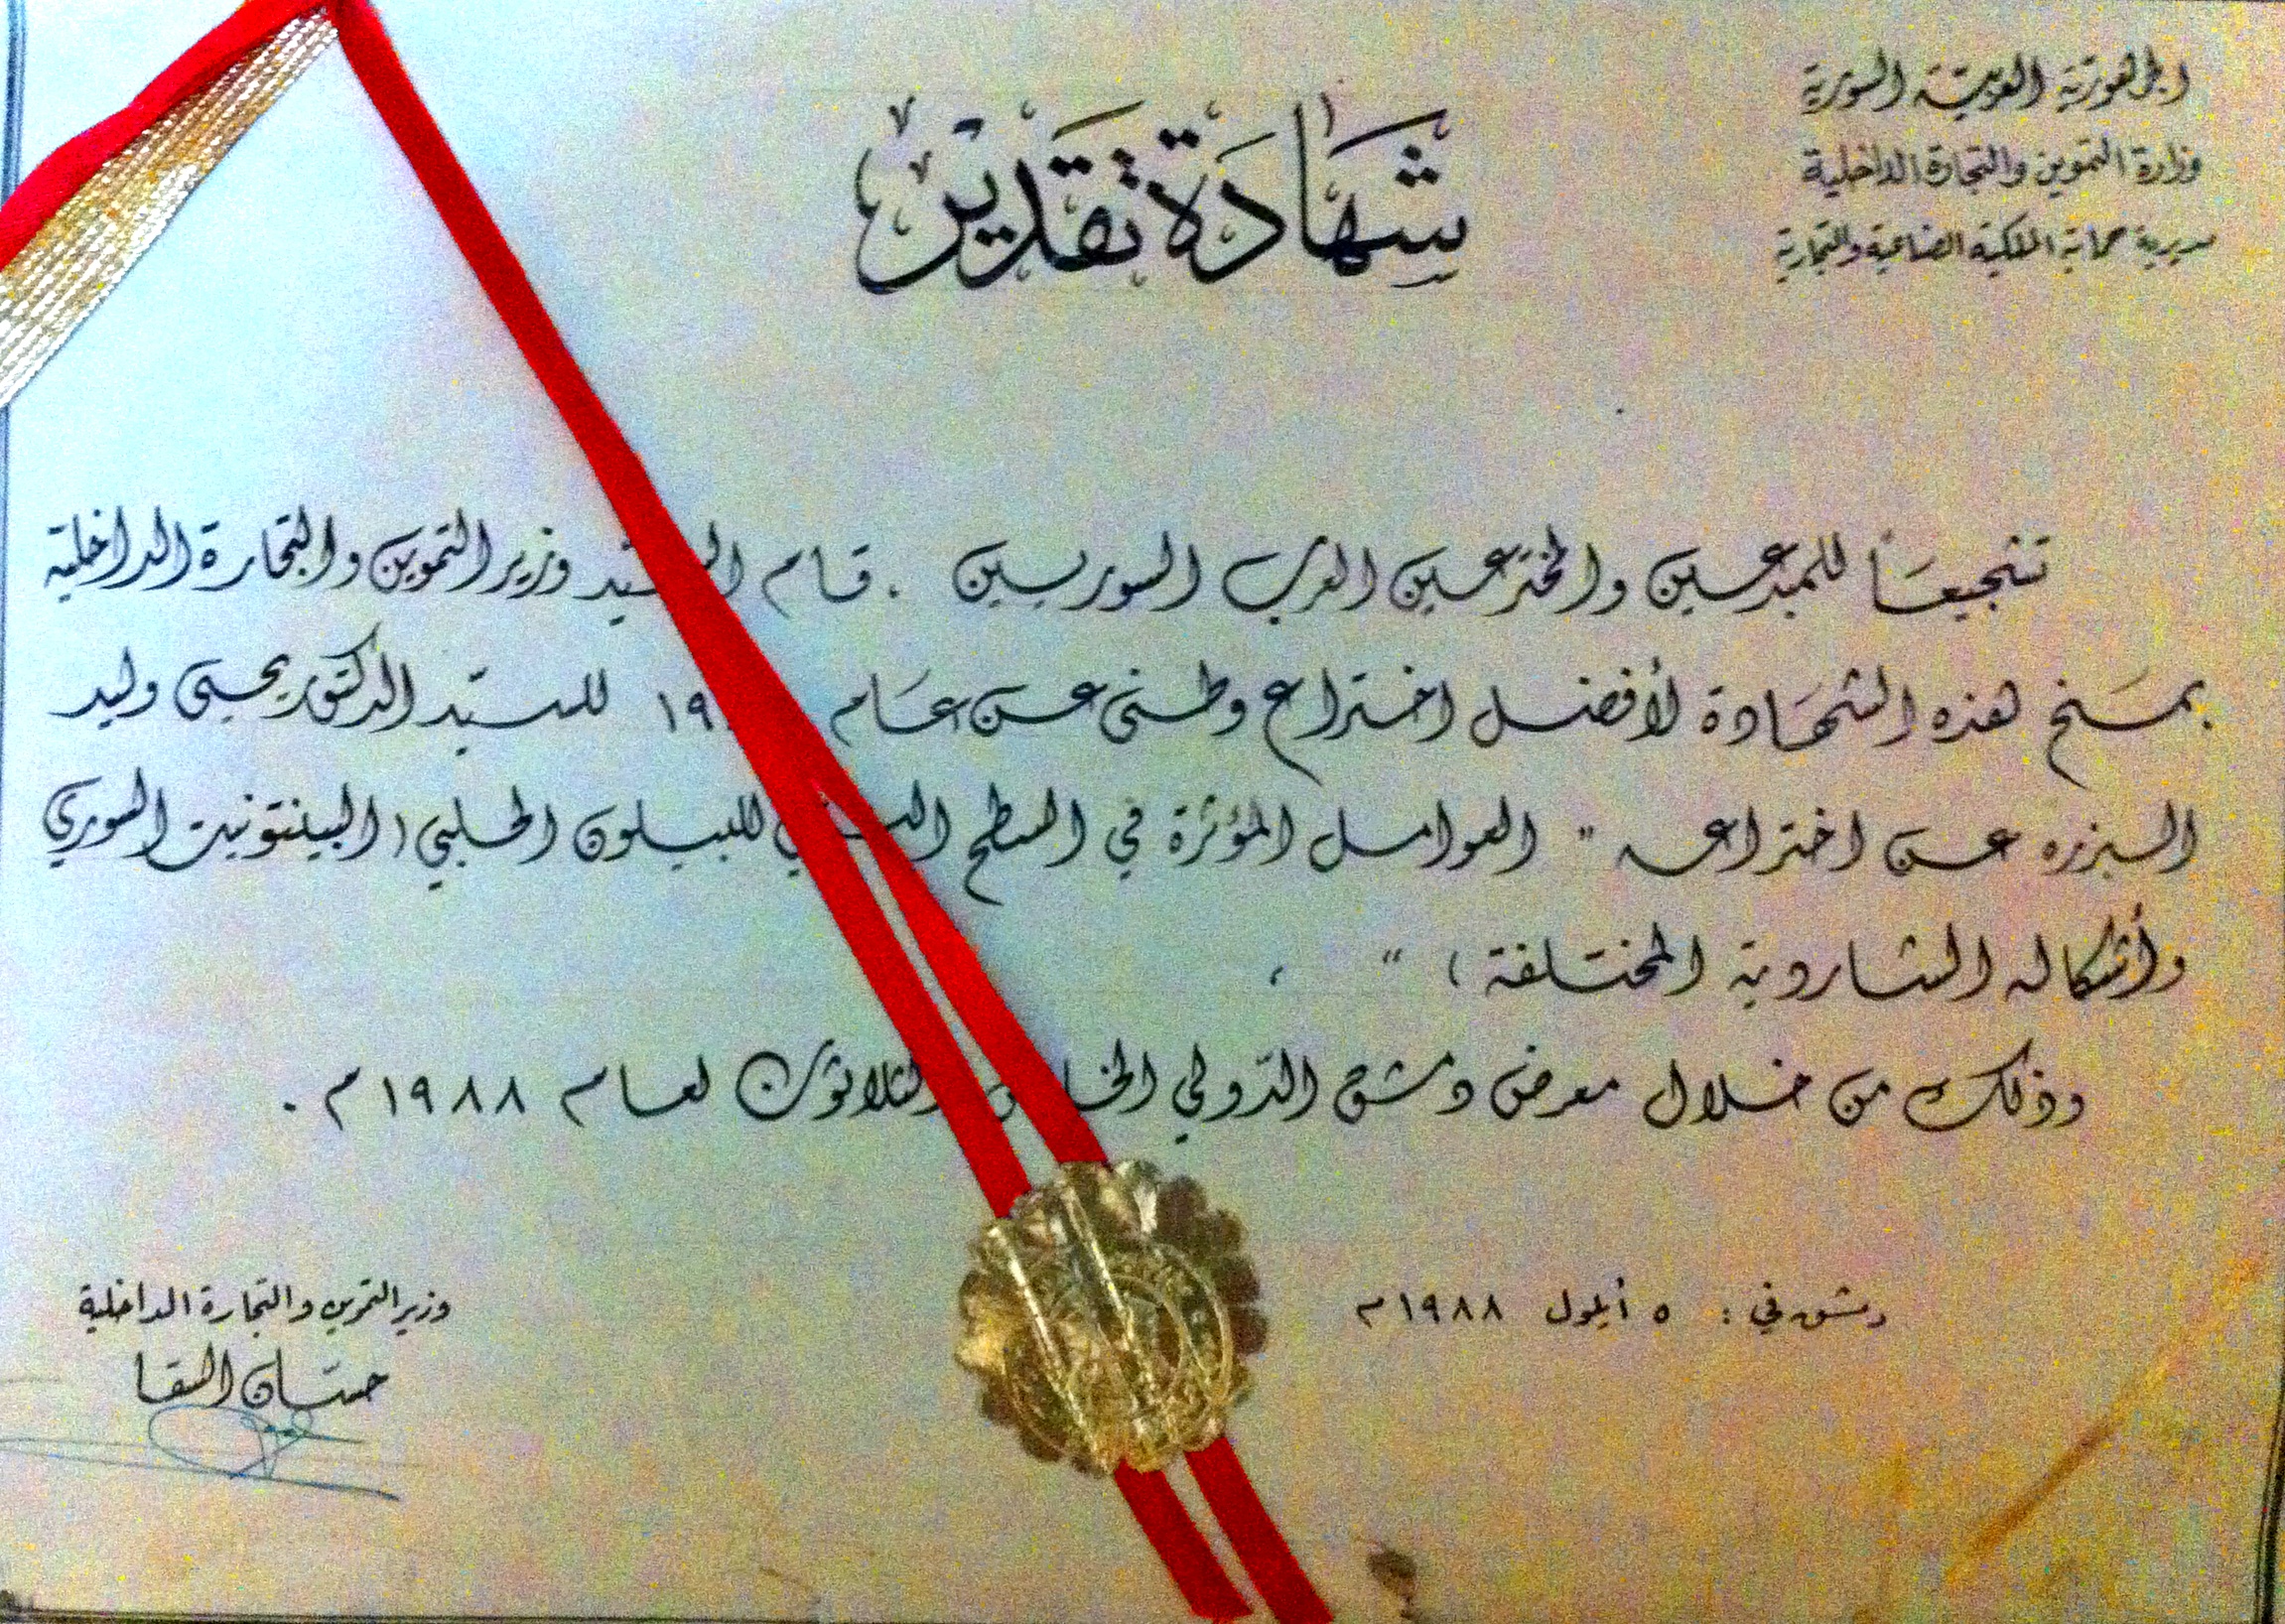 الجمهورية العربية السورية
وزارة التموين والتجارة الداخلية
مديرية حماية الملكية الصناعية والتجارية
شهادة تقدير
تشجيعاً للمبدعين والمخترعين العرب السوريين . قام السيد وزير التموين والتجارة الداخلية
بمنح هذه الشهادة لأفضل اختراع وطني عن عام للسيد الدكتور يحيى وليد
البزره عن اختراعه " العوامل المؤثرة في السطح للبيلون الحلبي ( البينتونيت السوري
وأشكاله الشاردية المختلفة ) " ،
وذلك من خلال معرض دمشق الدولي الخامس والثلاثون لعام ١٩٨٨ م .
دمشق في : ٥ أيلول ١٩٨٨ م
وزير التموين والتجارة الداخلية
حسان السقا